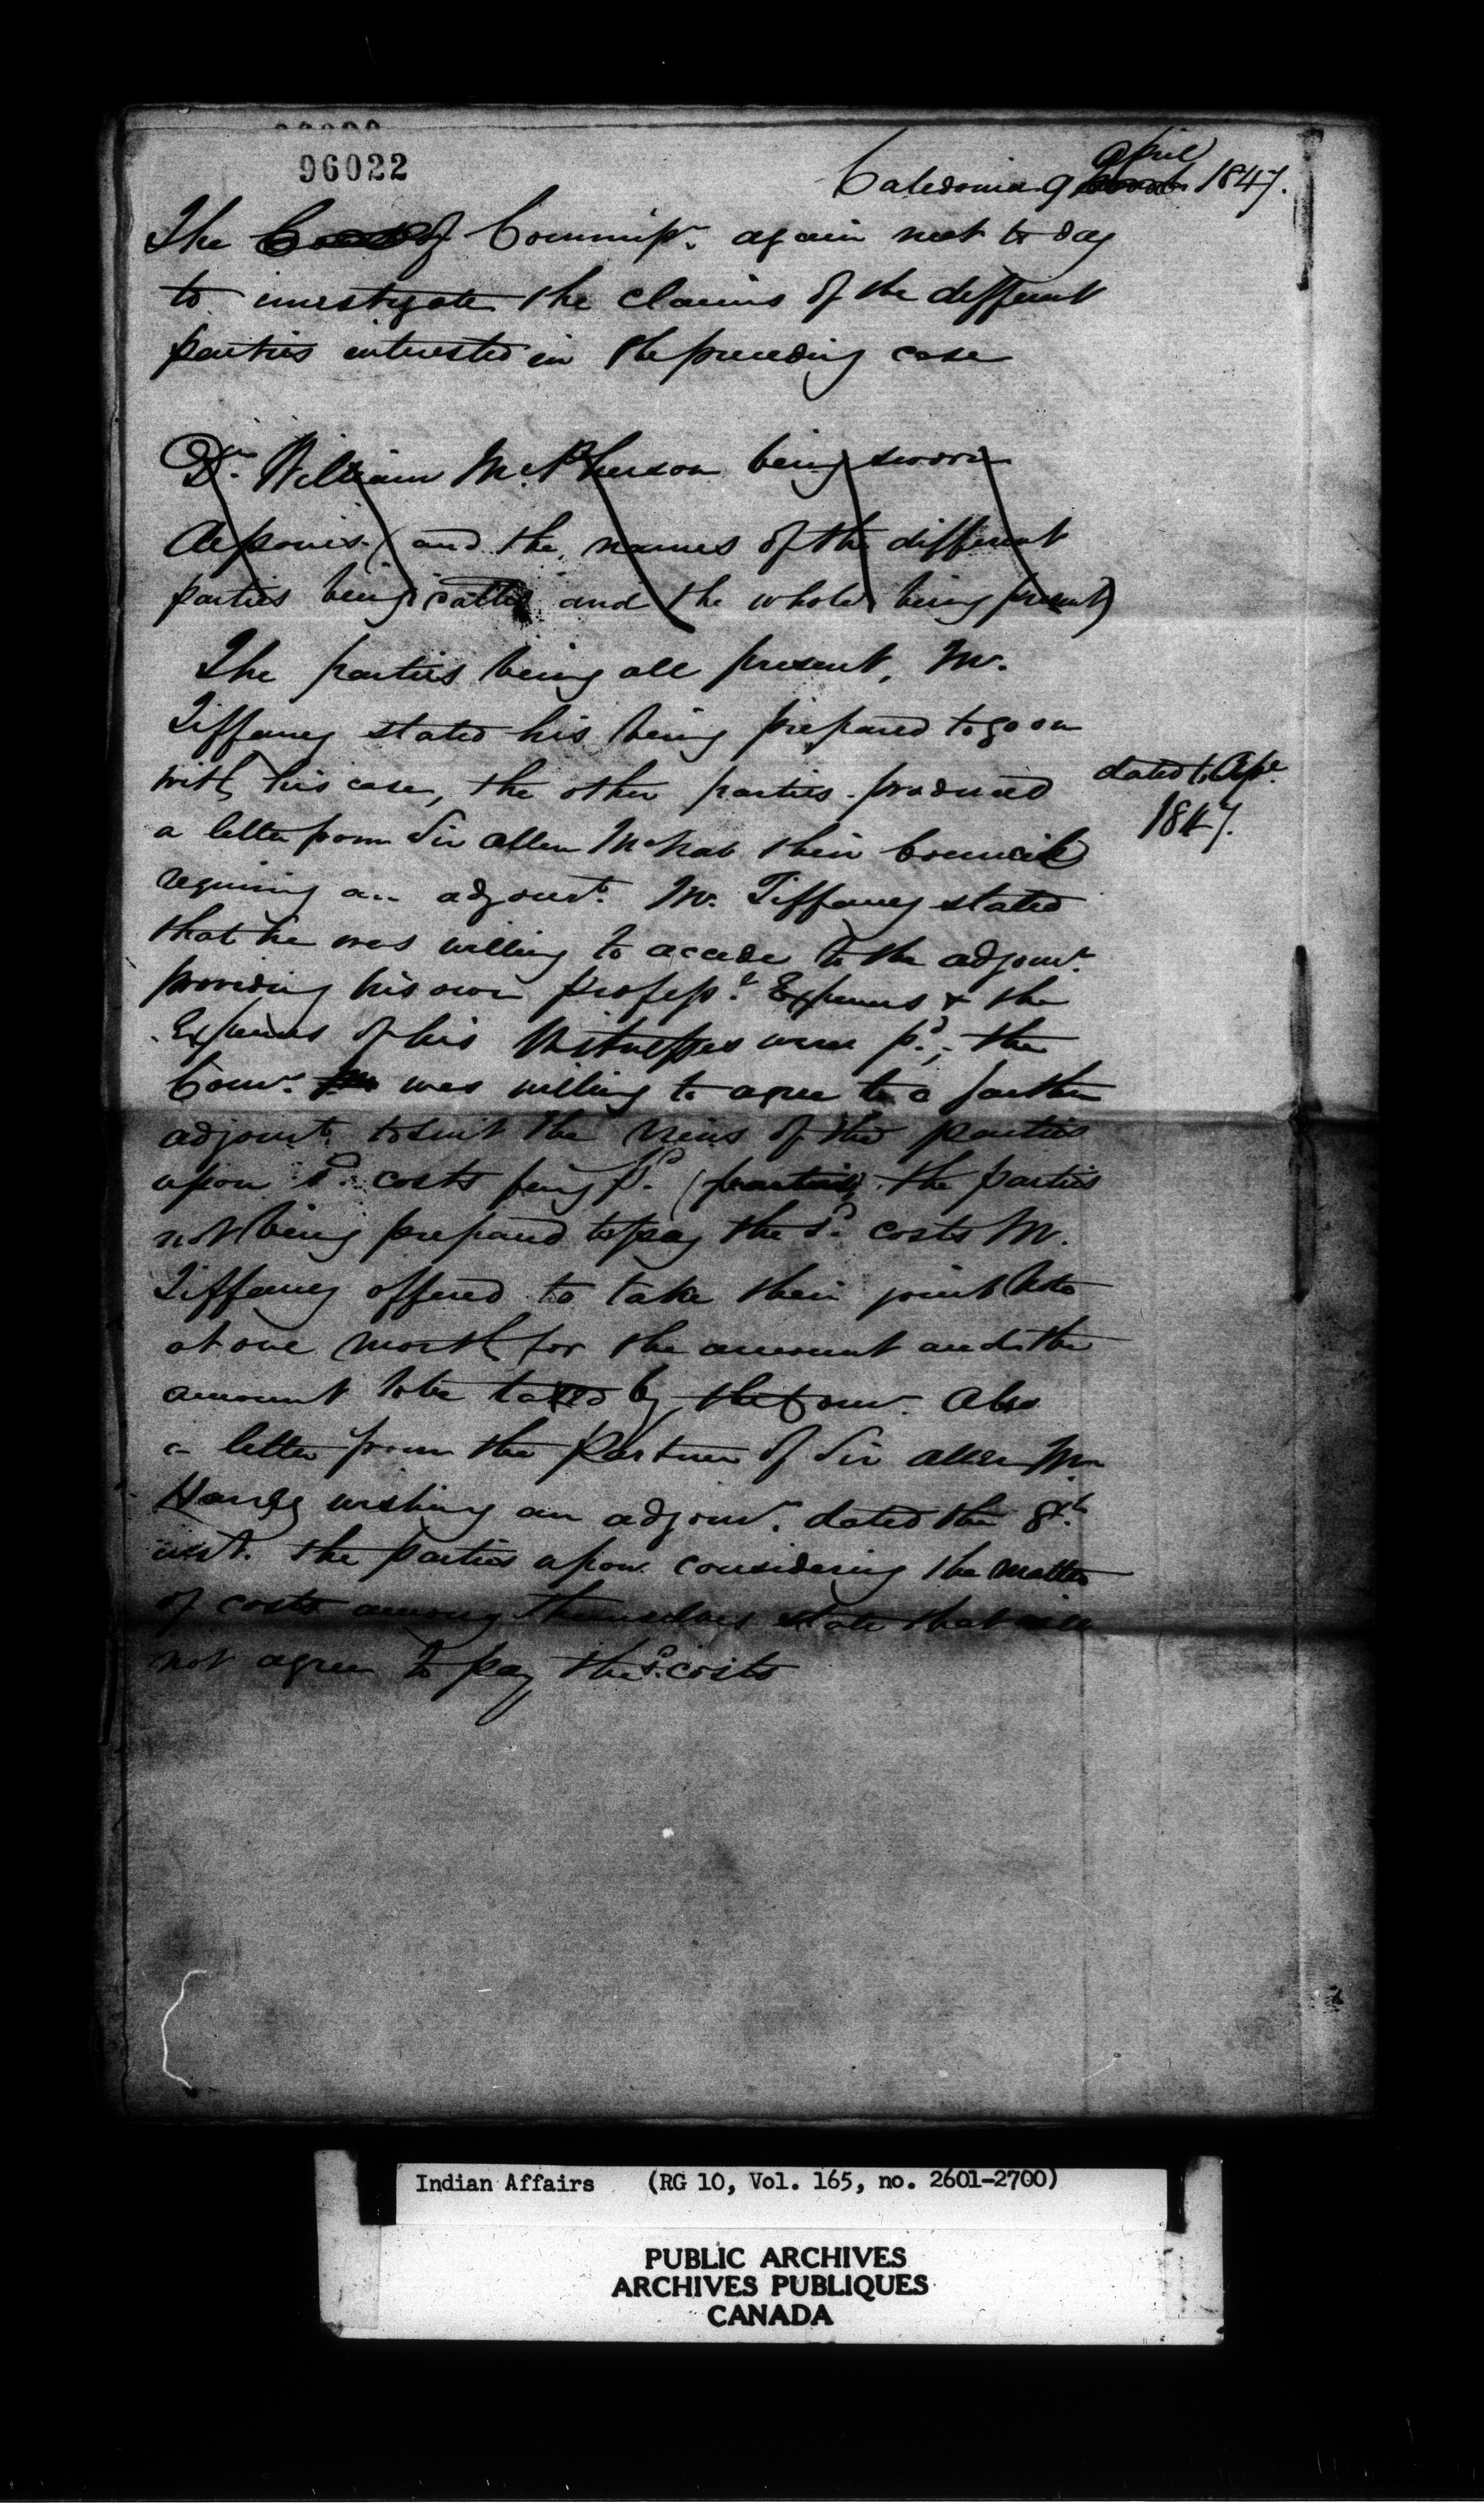 96022
Caledonia 9 April 1847.
The Commissr. again met to day
to investigate the claims of the different
parties interested in the preceding case
Dr. William McPherson being sworn
deposeis (and the names of the different
parties being called and the whole being present)
The parties being all present, Mr.
Tiffany stated his being prepared to go on
with his case, the other parties produced
dated 6 Apl.
1847.
a letter from Sir Allen McNab their Council
requiring an adjournt. Mr. Tiffany stated
that he was willing to accede to the adjournt.
providing his own professl. Expenses & the
Expenses of his Witnesses were pd.; the
Comr. was willing to agree to a farther
adjournt. to suit the views of the parties
upon sd. costs being pd. (the parties
not being prepared to pay the sd. costs Mr.
Tiffany offered to take their joint Note
at one month for the amount and the
amount to be taxed by the Comr. Also
a letter from the Partner of Sir Allen Mr.
wishing an adjournt. dated the 8th.
inst. the parties upon considering the matter
of costs among themselves state that will
not agree to pay the sd. costs
Indian Affairs (RG 10, Vol. 165, no. 2601-2700)
PUBLIC ARCHIVES
ARCHIVES PUBLIQUES
CANADA